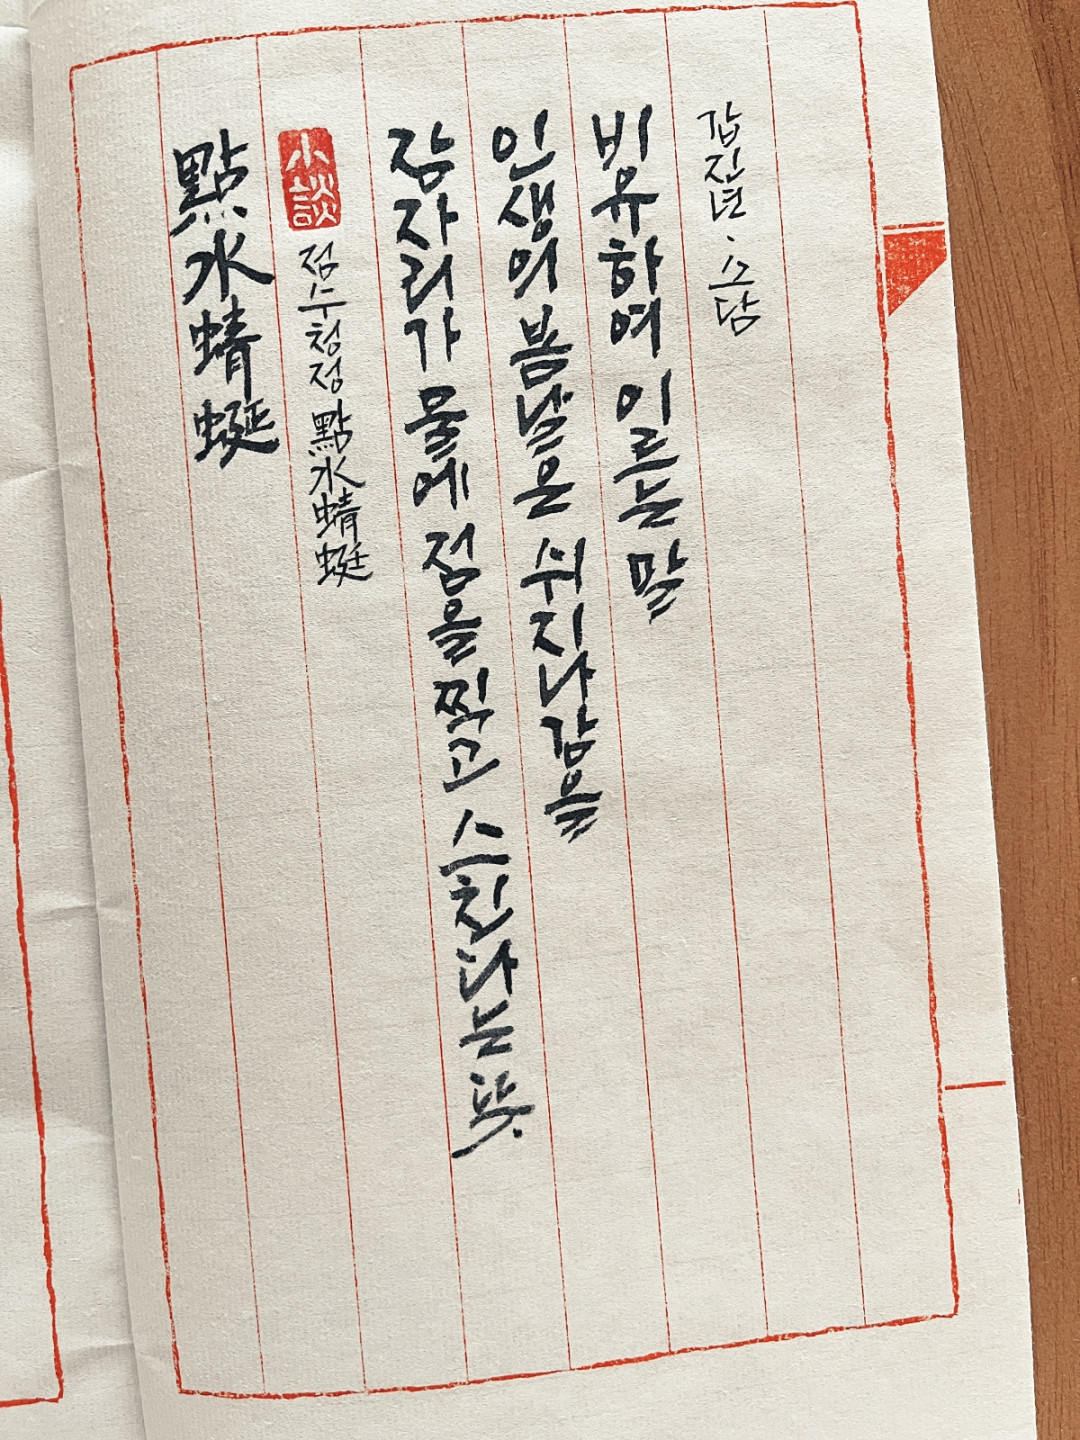 點水蜻蜓
小談
점수청정 點水蜻蜓
잠자리가 물에 점을 찍고 스친다는 뜻.
인생의 봄날은 쉬 지나감을
비유하여 이르는 말
갑진년 · 소담